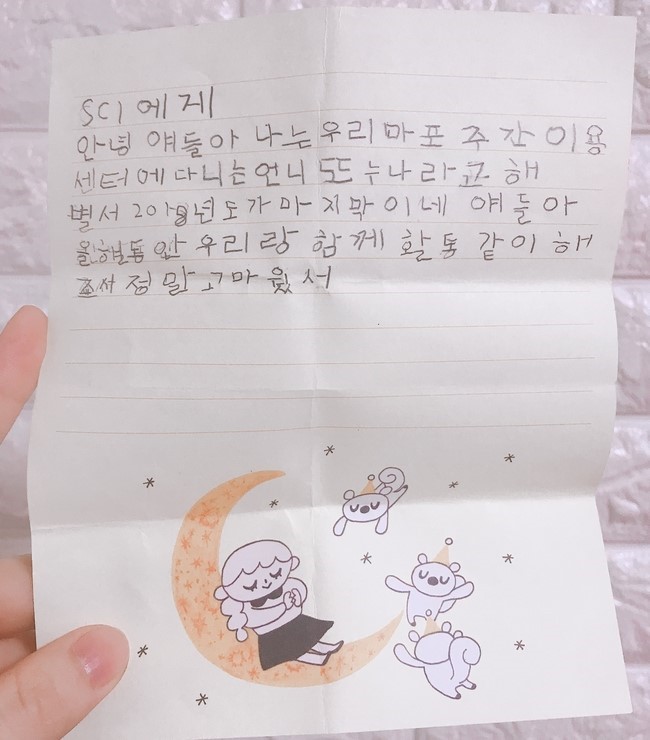 SCI에게
안녕 얘들아 나는 우리마포 주간이용
센터에 다니는 언니 또는 누나라고 해
별서 2018년도가 마지막이네 얘들아
올해동안 우리랑 함께 활동 같이 해
조서 정말 고마웠서